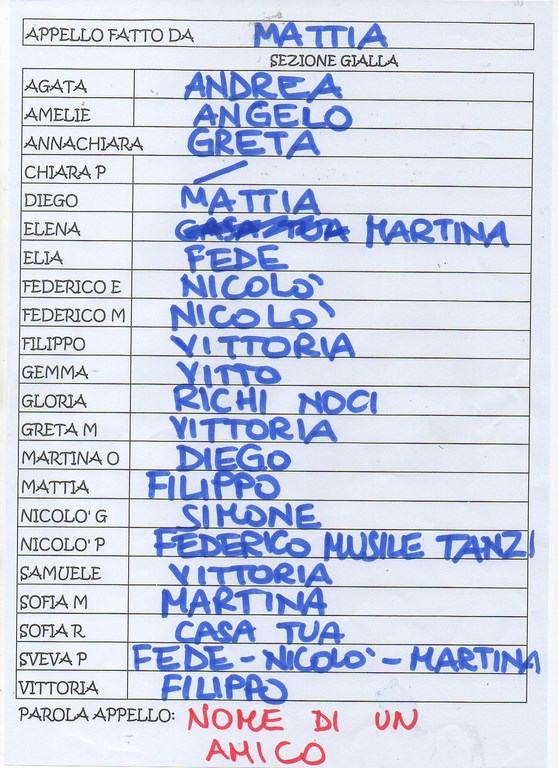 APPELLO FATTO DA MATTIA
SEZIONE GIALLA
AGATA ANDREA
AMELIE ANGELO
ANNACHIARA GRETA
CHIARA P /
DIEGO MATTIA
ELENA CASA TUA MARTINA
ELIA FEDE
FEDERICO E NICOLO'
FEDERICO M NICOLO'
FILIPPO VITTORIA
GEMMA VITTO
GLORIA RICHI NOCI
GRETA M VITTORIA
MARTINA O DIEGO
MATTIA FILIPPO
NICOLO' G SIMONE
NICOLO' P FEDERICO MUSILE TANZI
SAMUELE VITTORIA
SOFIA M MARTINA
SOFIA R CASA TUA
SVEVA P FEDE - NICOLO' - MARTINA
VITTORIA FILIPPO
PAROLA APPELLO: NOME DI UN
AMICO